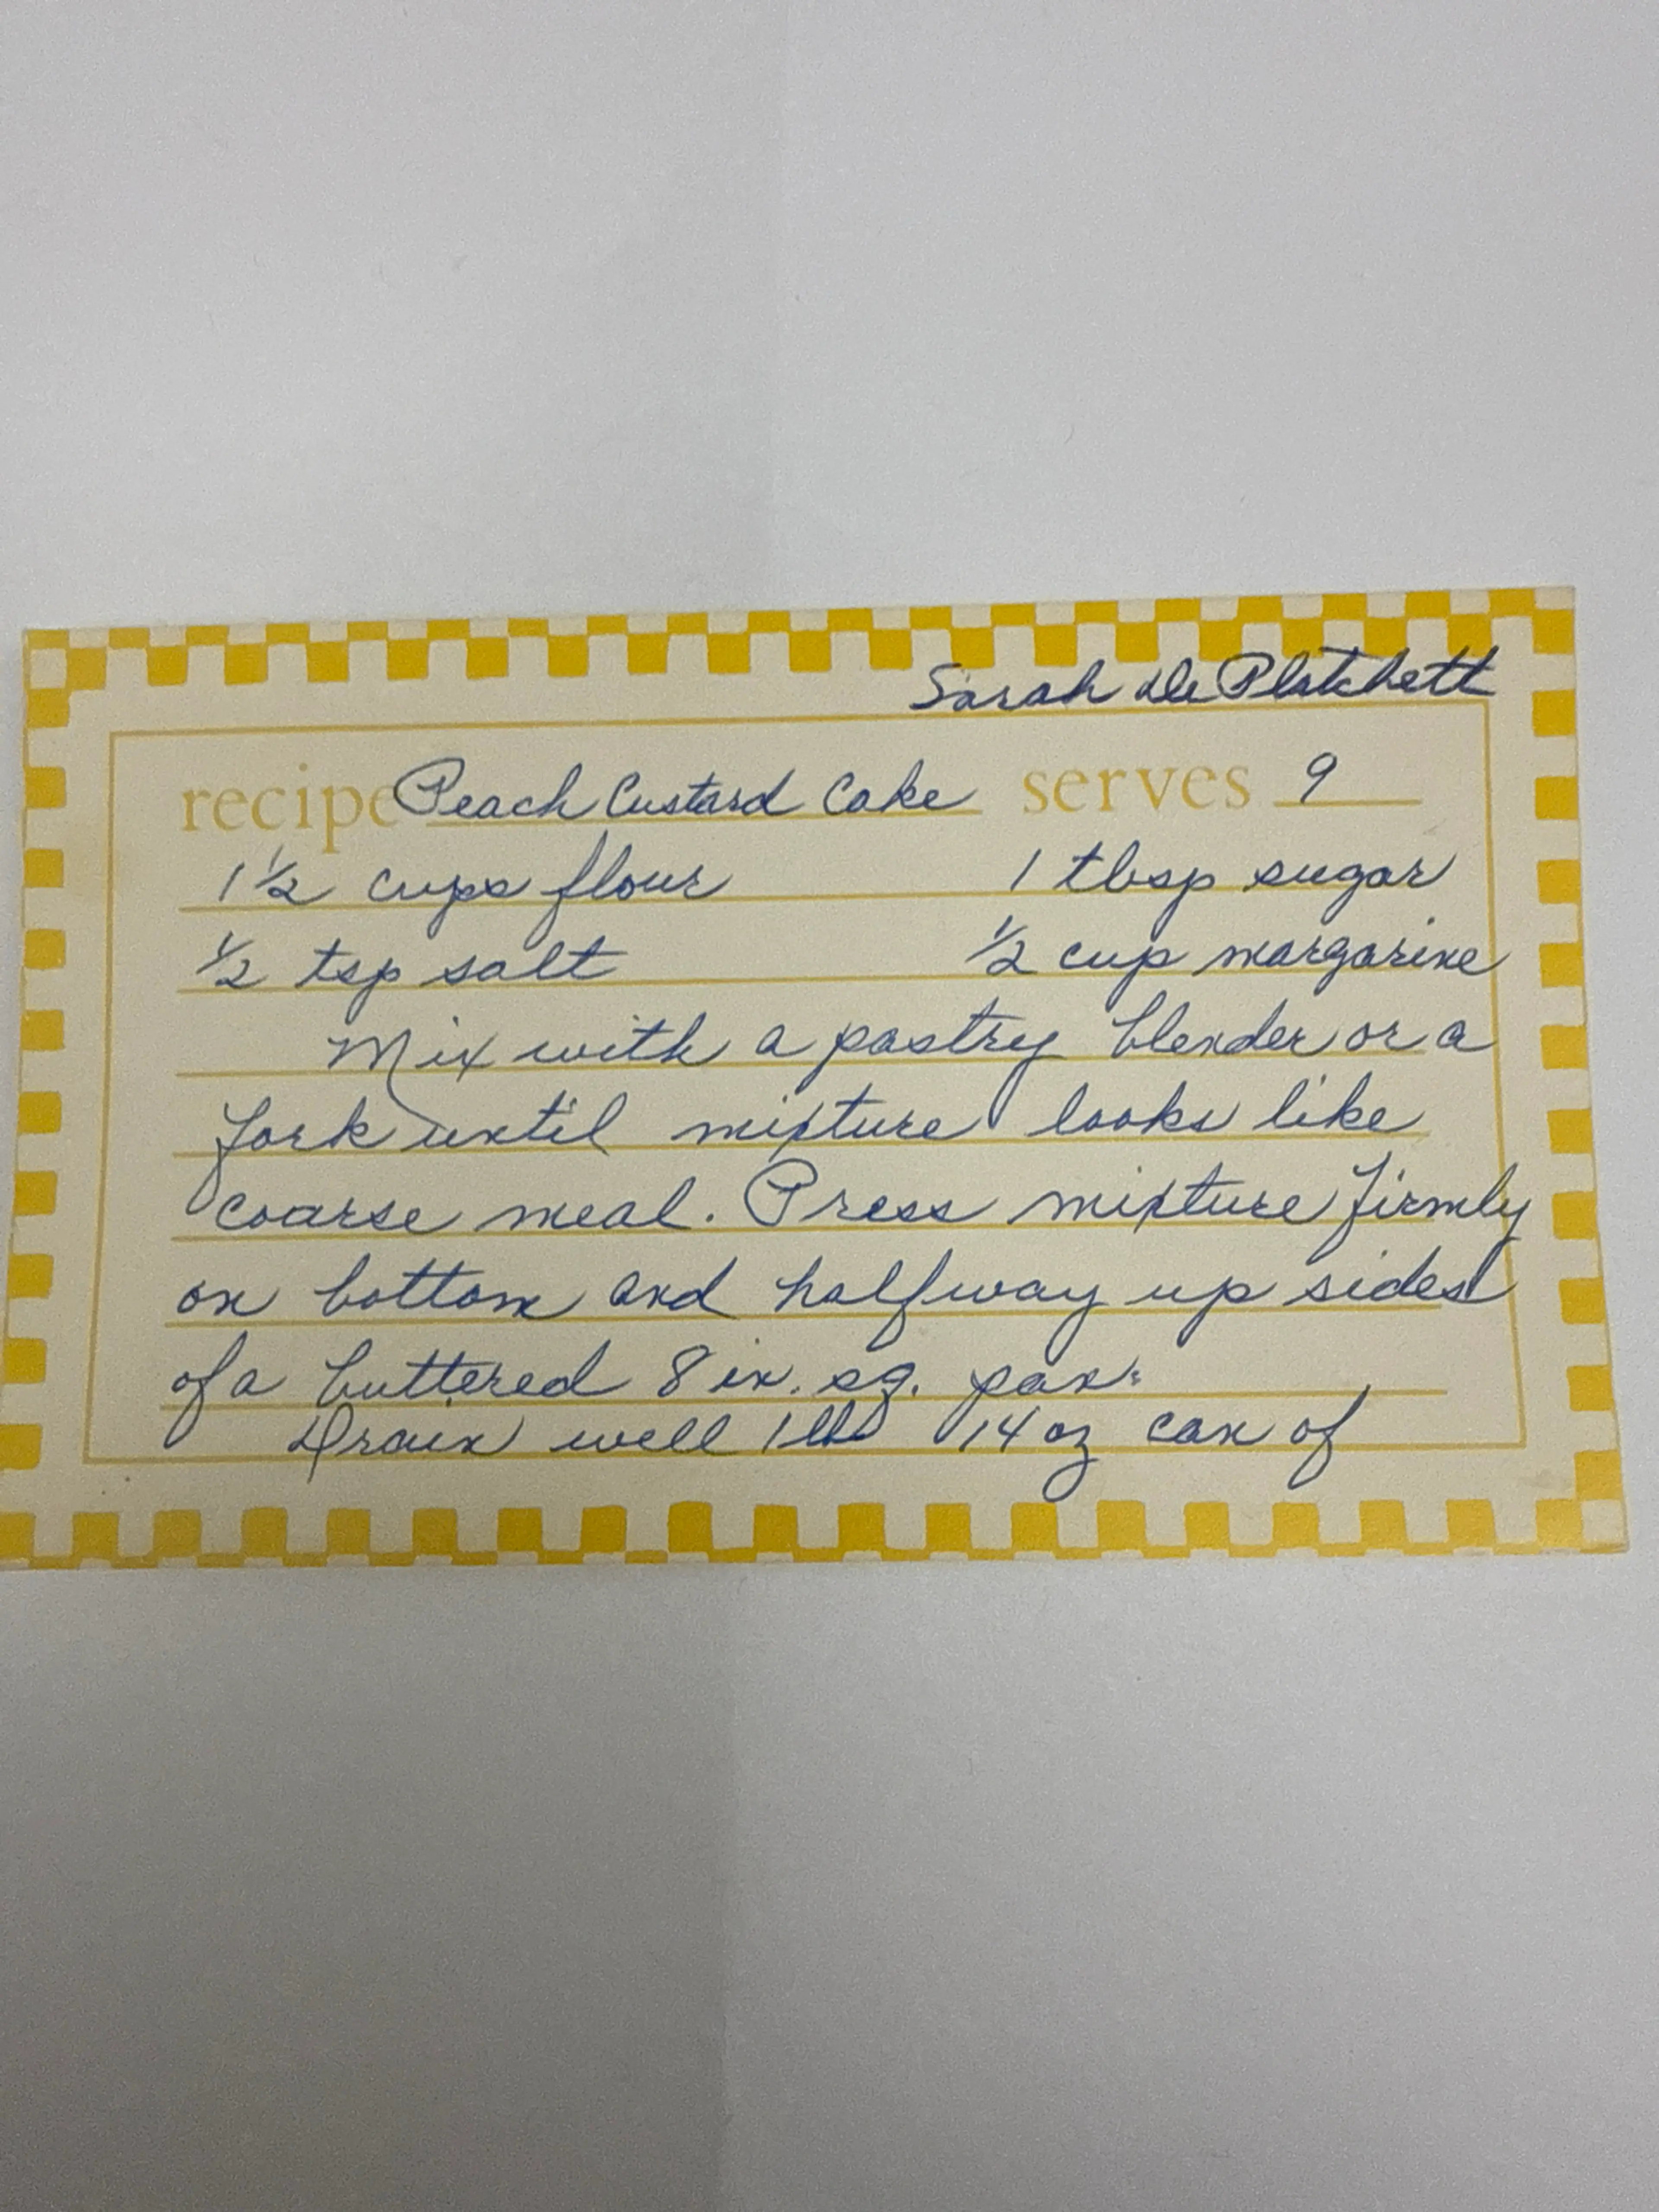 Sarah De Platchett
recipe Peach Custard Cake serves 9
1 1/2 cups flour 1 tbsp sugar
1/2 tsp salt 1/2 cup margarine
Mix with a pastry blender or a
fork until mixture looks like
coarse meal. Press mixture firmly
on bottom and halfway up sides
of a buttered 8 in. sq. pan.
Drain well 1 lb 14 oz can of